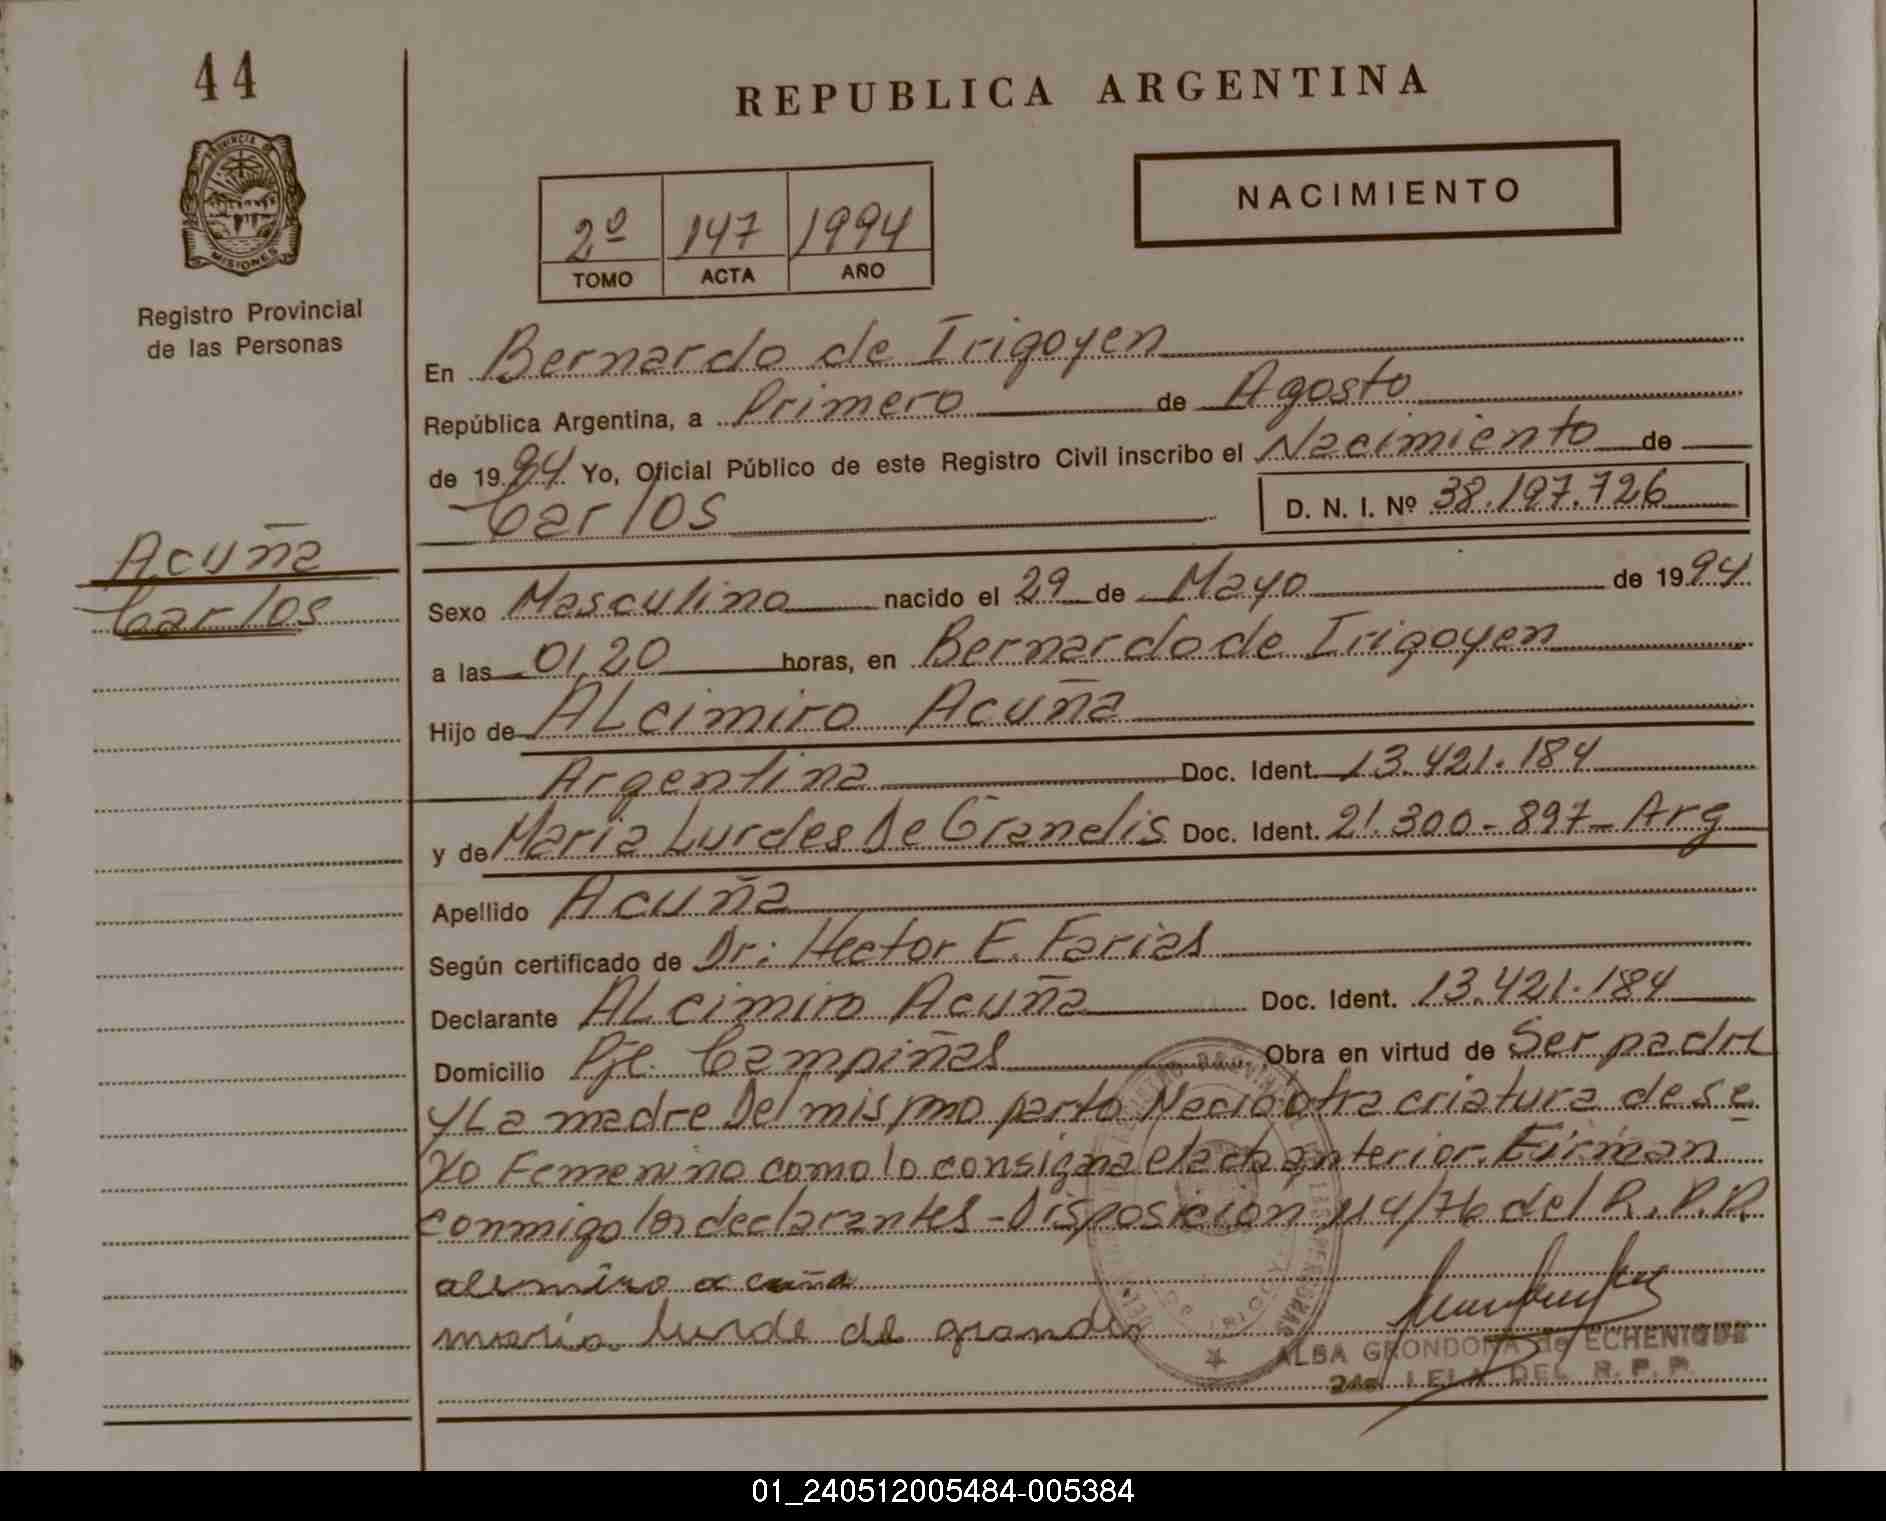 44
REPUBLICA ARGENTINA
PROVINCIA DE
MISIONES
Registro Provincial
de las Personas
2º 147 1994
TOMO ACTA AÑO
NACIMIENTO
En Bernardo de Irigoyen
República Argentina, a Primero de Agosto
de 1994 Yo, Oficial Público de este Registro Civil inscribo el Nacimiento de
Carlos D. N. I. Nº 38.197.726
Acuña
Carlos
Sexo Masculino nacido el 29 de Mayo de 1994
a las 01,20 horas, en Bernardo de Irigoyen
Hijo de ALcimiro Acuña
Argentina Doc. Ident. 13.421.184
y de Maria Lurdes De Grandis Doc. Ident. 21.300-897- Arg
Apellido Acuña
Según certificado de Dr: Hector E. Farias
Declarante ALcimiro Acuña Doc. Ident. 13.421.184
Domicilio Pje. Campiñas Obra en virtud de Ser padre
y La madre Del mismo parto Nacio otra criatura de se
xo Femenino como lo consigna el acta anterior. Firman
conmigo los declarantes - Disposición 114/76 del R.P.P.
alcimiro acuña
maria lurde de grandis
ALBA GRONDONA de ECHENIQUE
DEL R. P. P.
01_240512005484-005384